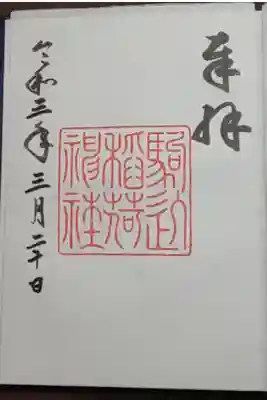 奉拝
駒込
稲荷
神社
令和三年三月二十日